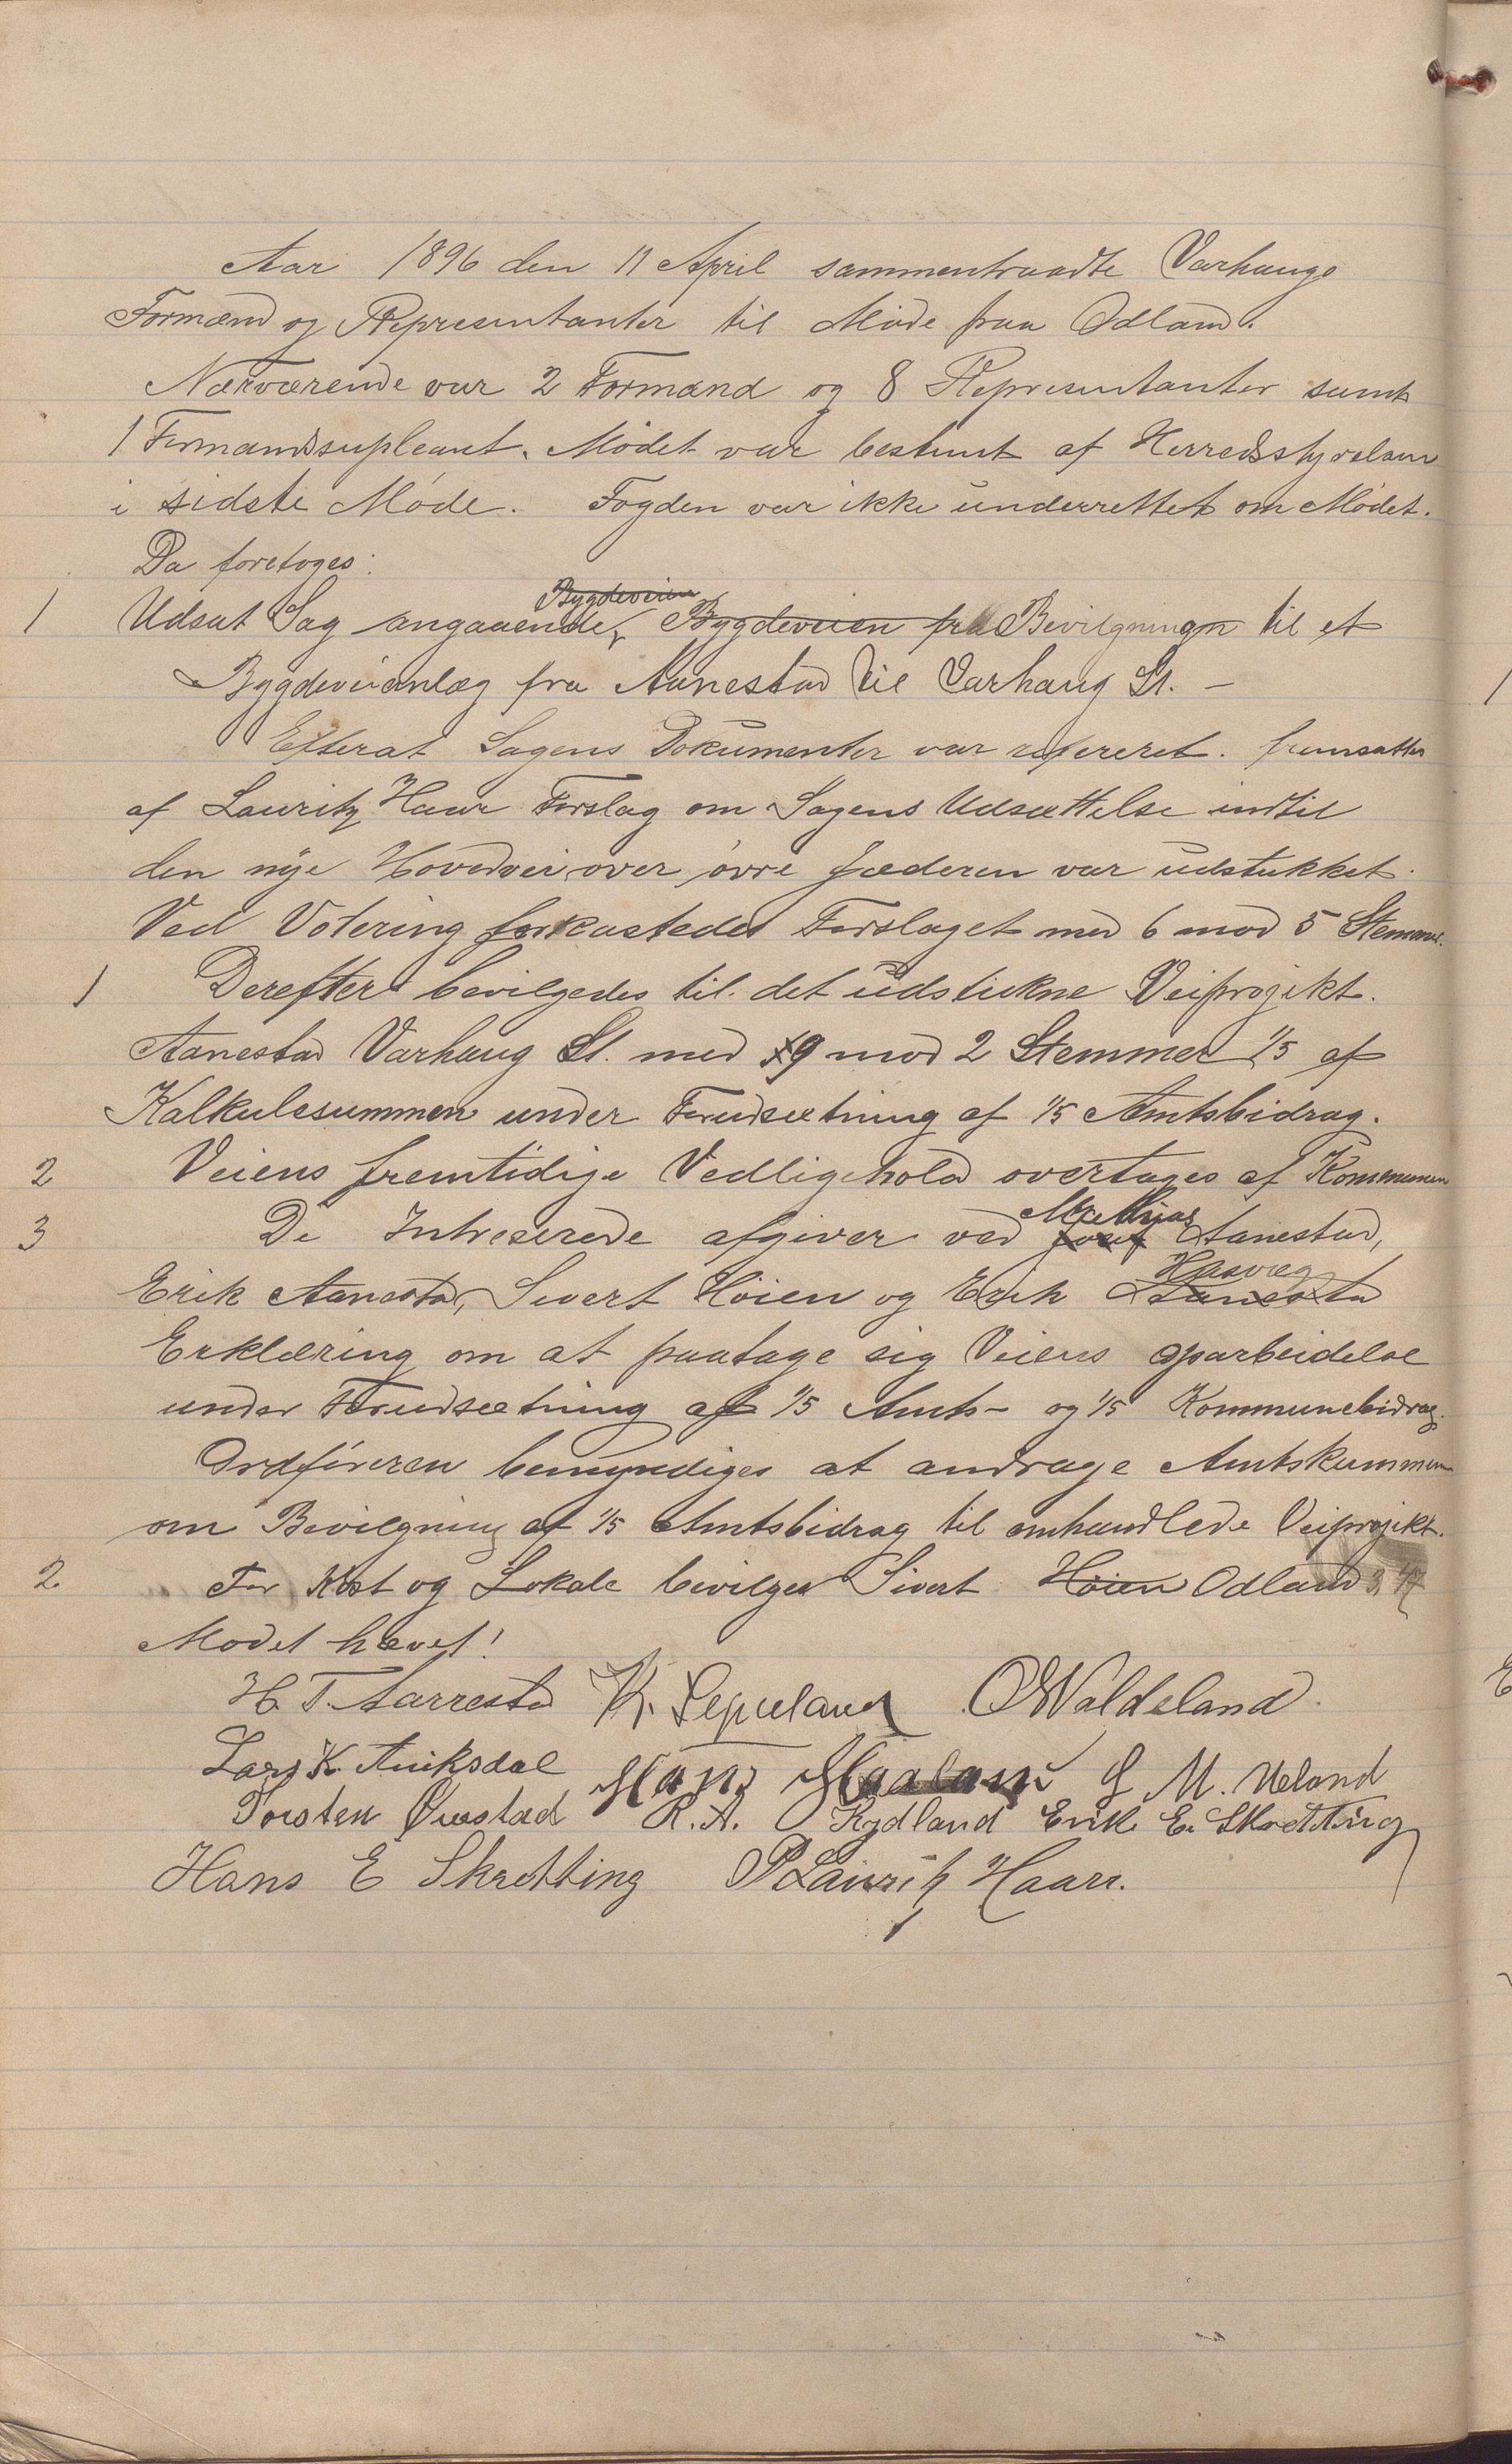 Aar 1896 den 11 April sammentraadte Varhaugs
Formænd og Representanter til Møde paa Odland.
Nærværende var 2 Formænd og 8 Representanter samt
1 Formandssupleant. Mødet var bestemt af Herredsstyrelsen
i sidste Møde. Fogden var ikke underrettet om Mødet.
Da foretoges:
Bygdeveien
1 Udsat Sag angaaende Bygdeveien fra Bevilgningen til et
Bygdeveianlæg fra Aanestad til Varhaug St. –
Efterat Sagens Dokumenter var refereret. fremsattes
af Lauritz Haar Forslag om Sagens Udsættelse indtil
den nye Hovedvei over øvre Jæderen var udstukket.
Ved Votering forkastedes Forslaget med 6 mod 5 Stemmer.
1 Derefter bevilgedes til det udstukne Veiprojekt.
Aanestad Varhaug St. med 9 mod 2 Stemmer 1/5 af
Kalkulesummen under Forudsætning af 1/5 Amtsbidrag.
2 Veiens fremtidige Vedligehold overtages af Kommunen
Mathias
3 De Intreserede afgiver ved Aanestad,
Hasvæg
Erik Aanestad, Sivert Høien og Erik Aanestad
Erklæring om at paatage sig Veiens oparbeidelse
under Forudsætning af 1/5 Amts- og 1/5 Kommunebidrag.
Ordføreren bemyndiges at andrage Amtskommunen
om Bevilgning af 1/5 Amtsbidrag til omhandlede Veiprojekt.
2 For Kost og Lokale bevilges Sivert Høien Odland 3,47
Mødet hævet!
H. T. Aarrestad K. Lepueland O Waldeland.
Lars K. Auksdal Hans Haaland G M. Ueland
Torsten Qvestad R. A. Rydland Erik E. Skretting
Hans E Skretting P Lauritz Haarr.